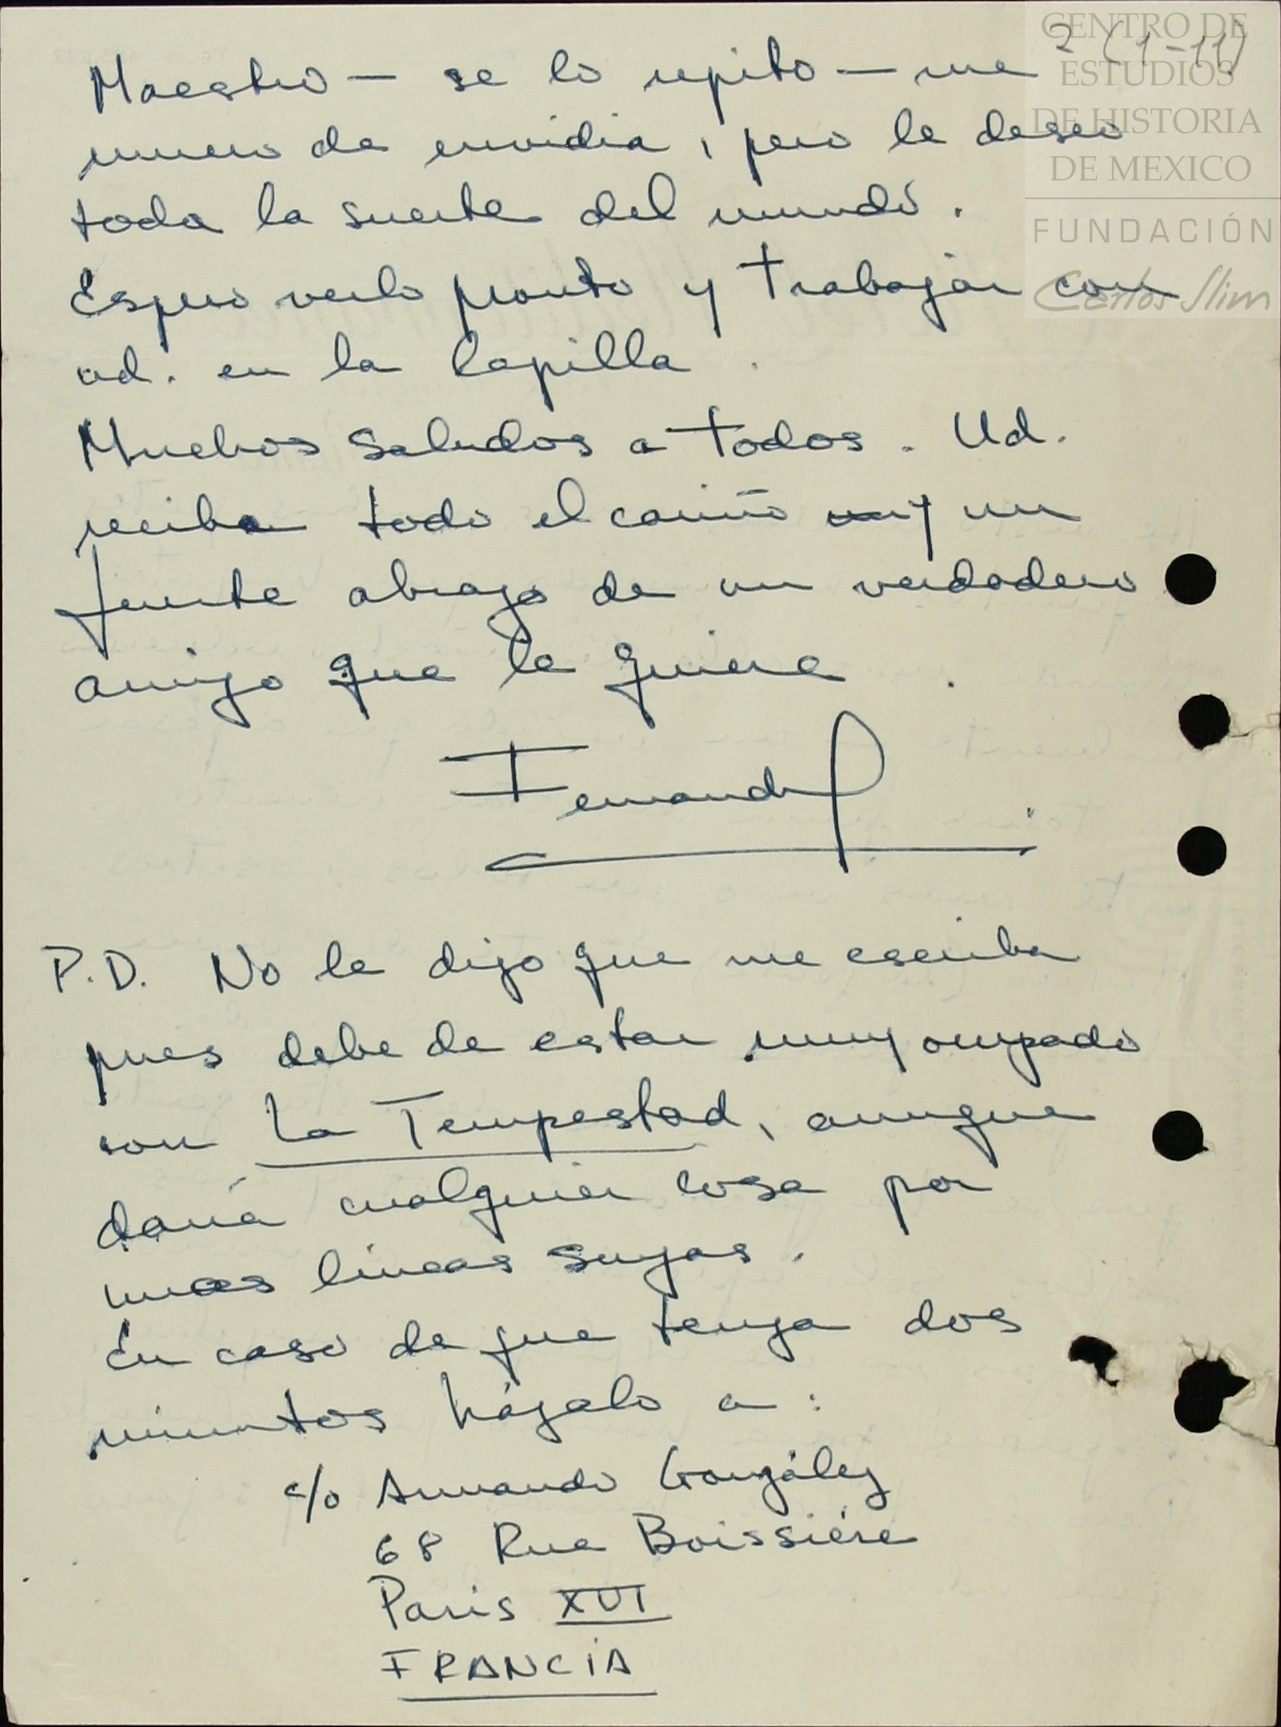 CENTRO DE
ESTUDIOS
DE HISTORIA
DE MEXICO
FUNDACIÓN
Carlos Slim
2 (1-11)
Maestro — se lo repito — me
muero de envidia, pero le deseo
toda la suerte del mundo.
Espero verlo pronto y trabajar con
ud. en la Capilla.
Muchos saludos a todos. Ud.
reciba todo el cariño y un
fuerte abrazo de un verdadero
amigo que le quiere
Fernando
P.D. No le digo que me escriba
pues debe de estar muy ocupado
con La Tempestad, aunque
daría cualquier cosa por
unas líneas suyas.
En caso de que tenga dos
minutos hágalo a:
c/o Armando González
68 Rue Boissiére
Paris XVI
FRANCIA